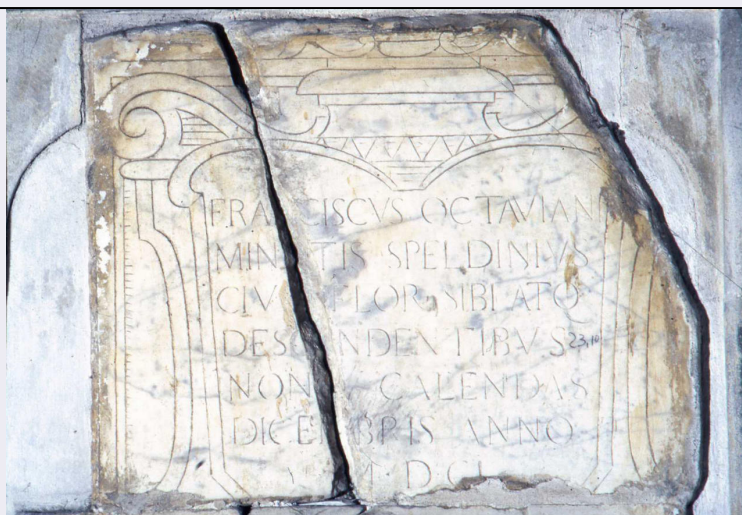 FRANCISCVS OCTAVIAN
MIN TIS SPELDINIVS
CIV FLOR SIBI ATQ
DESCENDENTIBVS 23,10
NON CALENDAS
DICEMBRIS ANNO
D C